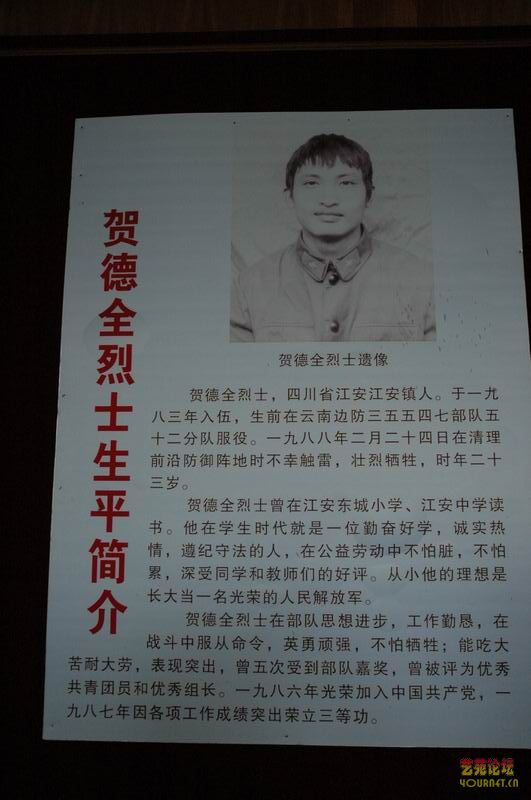 贺德全烈士生平简介
贺德全烈士遗像
贺德全烈士，四川省江安江安镇人。于一九
八三年入伍，生前在云南边防三五五四七部队五
十二分队服役。一九八八年二月二十四日在清理
前沿防御阵地时不幸触雷，壮烈牺牲，时年二十
三岁。
贺德全烈士曾在江安东城小学、江安中学读
书。他在学生时代就是一位勤奋好学，诚实热
情，遵纪守法的人，在公益劳动中不怕脏，不怕
累，深受同学和教师们的好评。从小他的理想是
长大当一名光荣的人民解放军。
贺德全烈士在部队思想进步，工作勤恳，在
战斗中服从命令，英勇顽强，不怕牺牲；能吃大
苦耐大劳，表现突出，曾五次受到部队嘉奖，曾被评为优秀
共青团员和优秀组长。一九八六年光荣加入中国共产党，一
九八七年因各项工作成绩突出荣立三等功。
艺苑论坛
YOURNET.CN